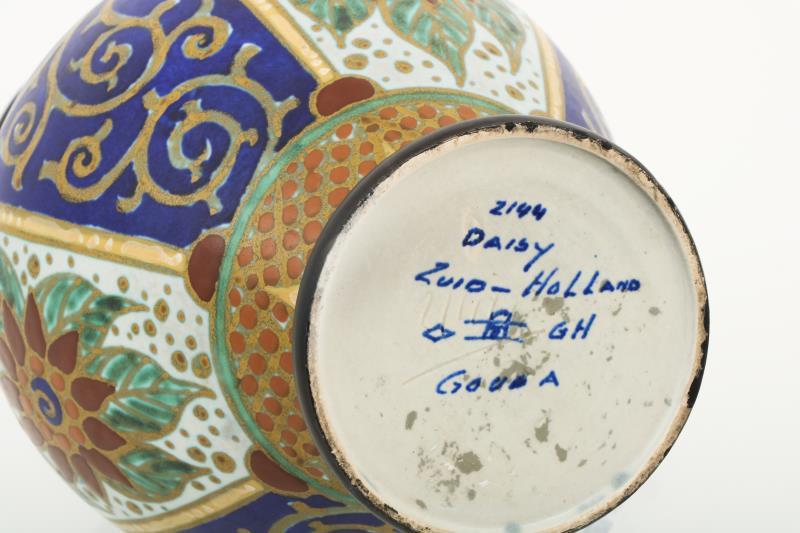 2144
DAISY
ZUID-HOLLAND
GH
GOUDA